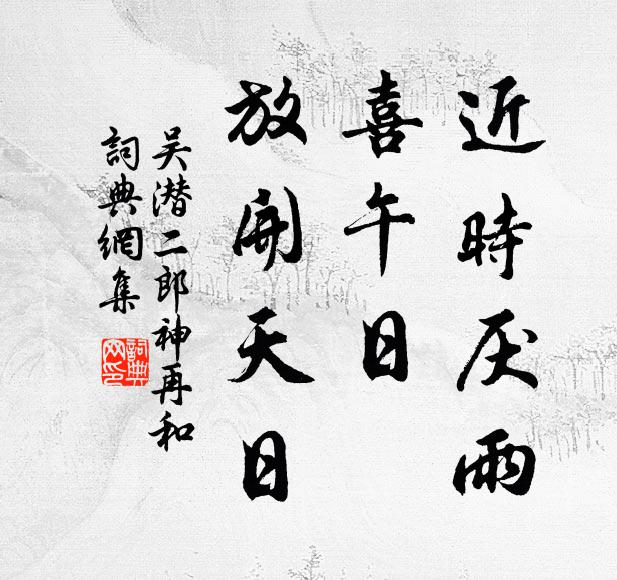 近時厌雨
喜午日
放開天日
吴潛二郎神再和
詞典網集
詞典
网印